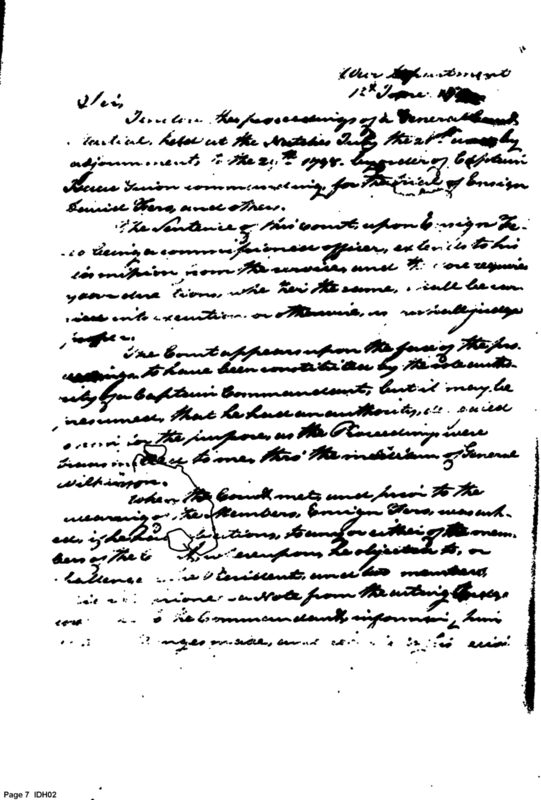 War Department
12th June
Sir,
I enclose the proceedings of a General Court
Martial, held at the Natches July the 28th and by
adjournments to the 29th 1798. by order of Captain
Isaac Guion commanding, for the trial of Ensign
David Fero, and others.
The Sentence of this Court, upon Ensign Fe-
ro being a commissioned officer, extends to his
dismission from the service, and therefore requires
your directions, whether the same, shall be car-
ried into execution or otherwise, as you shall judge
proper.
The Court appears upon the face of the pro-
ceedings to have been constituted by the sole autho-
rity of a Captain Commandant, but it may be
presumed, that he had an authority,
for the purpose, as the Proceedings were
transmitted to me, thro' the medium of General
Wilkinson.
When the Court met, and prior to the
swearing of the Members, Ensign Fero, was ask-
ed if he had objections, to any or either of the mem-
bers of the Court whereupon, he objected to, or
challenged the President, and two members,
a Note from the acting Judge
to the Commandant, informing him
made, and his